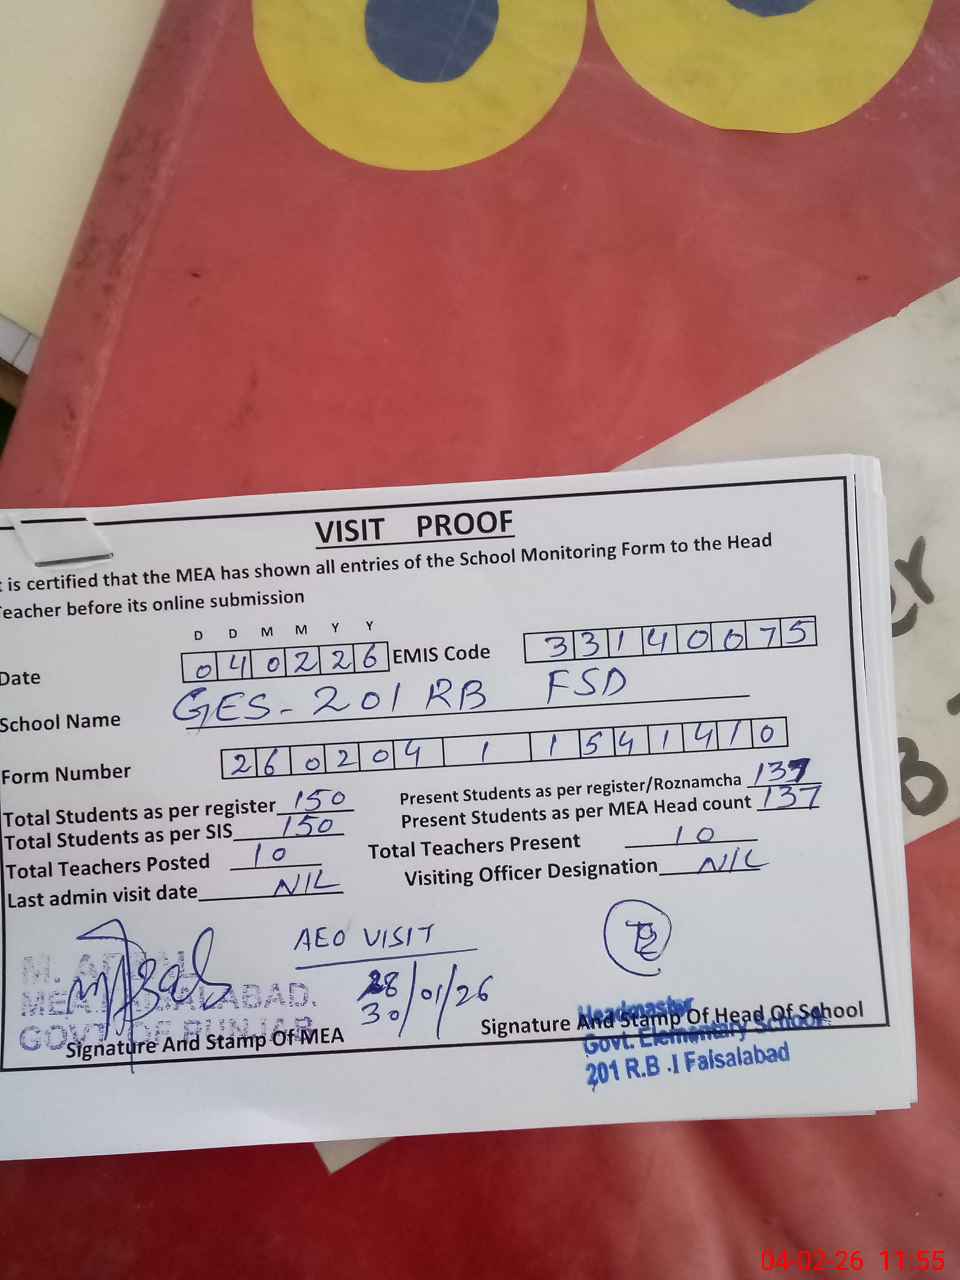 VISIT PROOF
t is certified that the MEA has shown all entries of the School Monitoring Form to the Head
Teacher before its online submission
D D M M Y Y
Date 040226 EMIS Code 33140075
School Name GES-201 RB FSD
Form Number 260204 1 1541410
Total Students as per register 150 Present Students as per register/Roznamcha 137
Total Students as per SIS 150 Present Students as per MEA Head count 137
Total Teachers Posted 10 Total Teachers Present 10
Last admin visit date NIL Visiting Officer Designation NIL
AEO VISIT
28/01/26
30
M.
MEA FAISALABAD.
GOVT OF PUNJAB
Signature And Stamp Of MEA
Signature And Stamp Of Head Of School
Headmaster
Govt. Elementary School
201 R.B .I Faisalabad
er
B
04-02-26 11:55